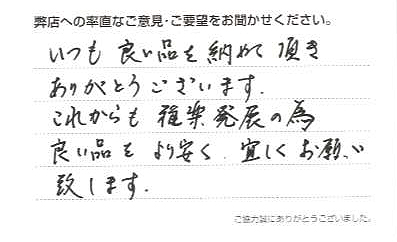 弊店への率直なご意見・ご要望をお聞かせください。
いつも 良い品を納めて 頂き
ありがとうございます.
これからも 雅楽発展の為
良い品を より安く. 宜しくお願い
致します.
ご協力誠にありがとうございました。